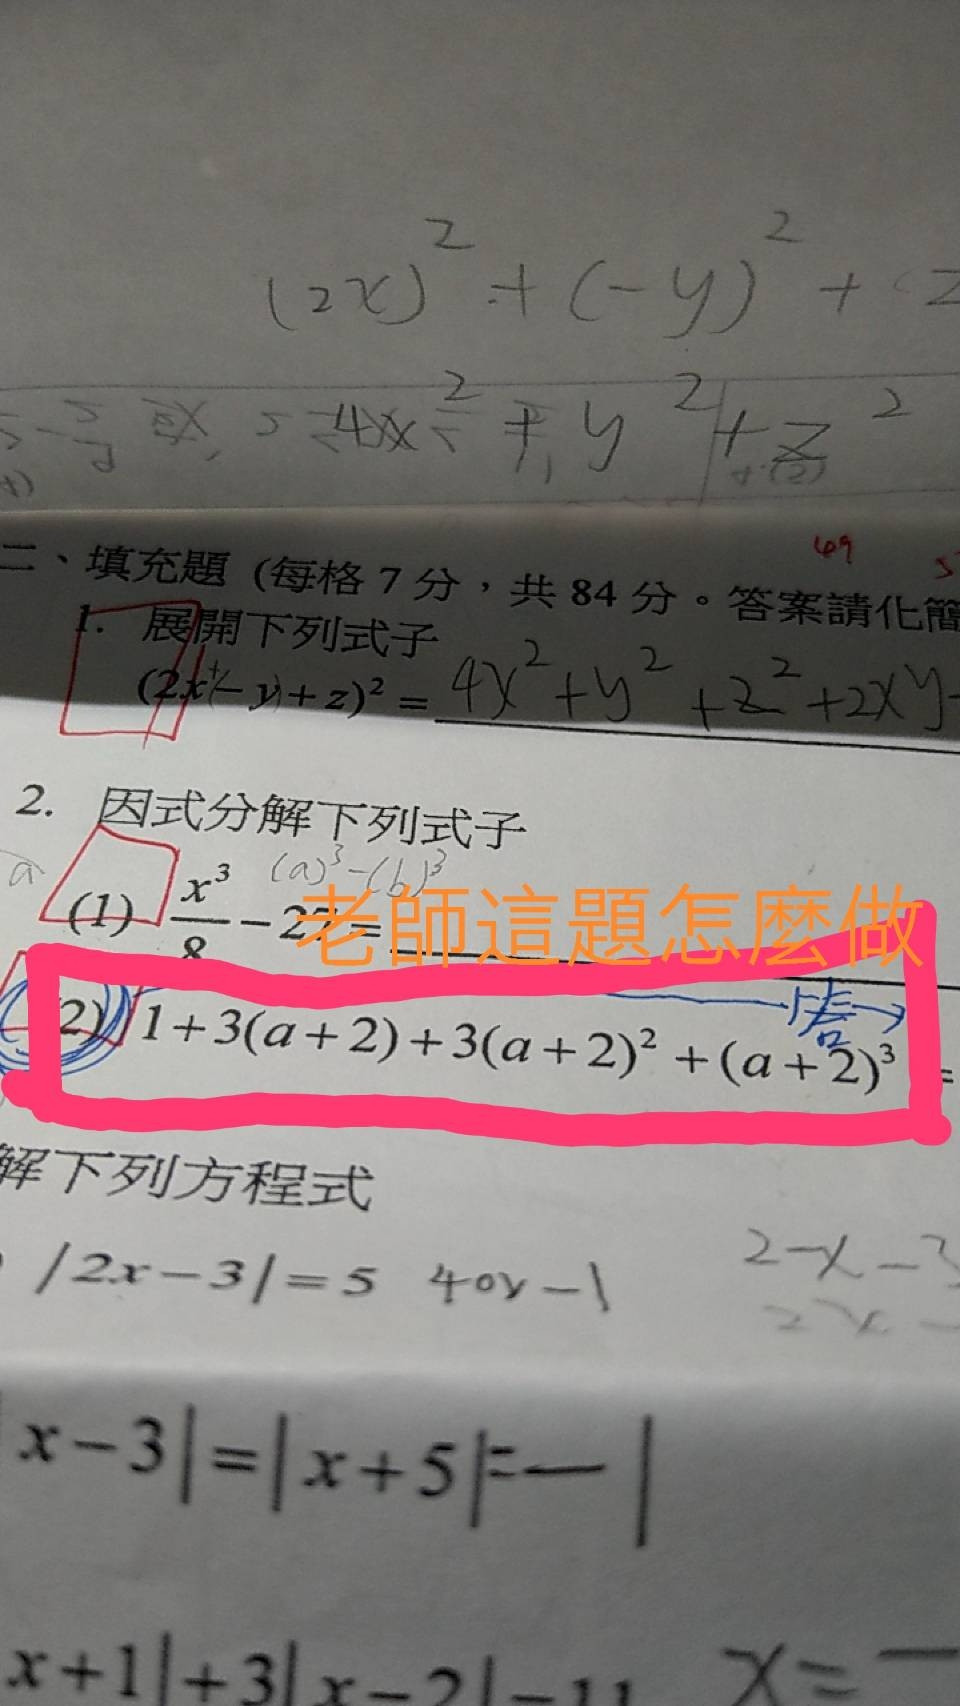 (2x)² + (-y)² + z
4x² + y² + z²
69
二、填充題 (每格 7 分，共 84 分。答案請化簡
1. 展開下列式子
(2x - y + z)² = 4x² + y² + z² + 2xy -
2. 因式分解下列式子
(a)³ - (b)³
(1) x³/8 - 27 =
老師這題怎麼做
(2) 1 + 3(a + 2) + 3(a + 2)² + (a + 2)³ =
解下列方程式
|2x - 3| = 5 4 or -1
2 - x - 3
|x - 3| = |x + 5|
x + 1| + 3|x - 2| = 11 x =